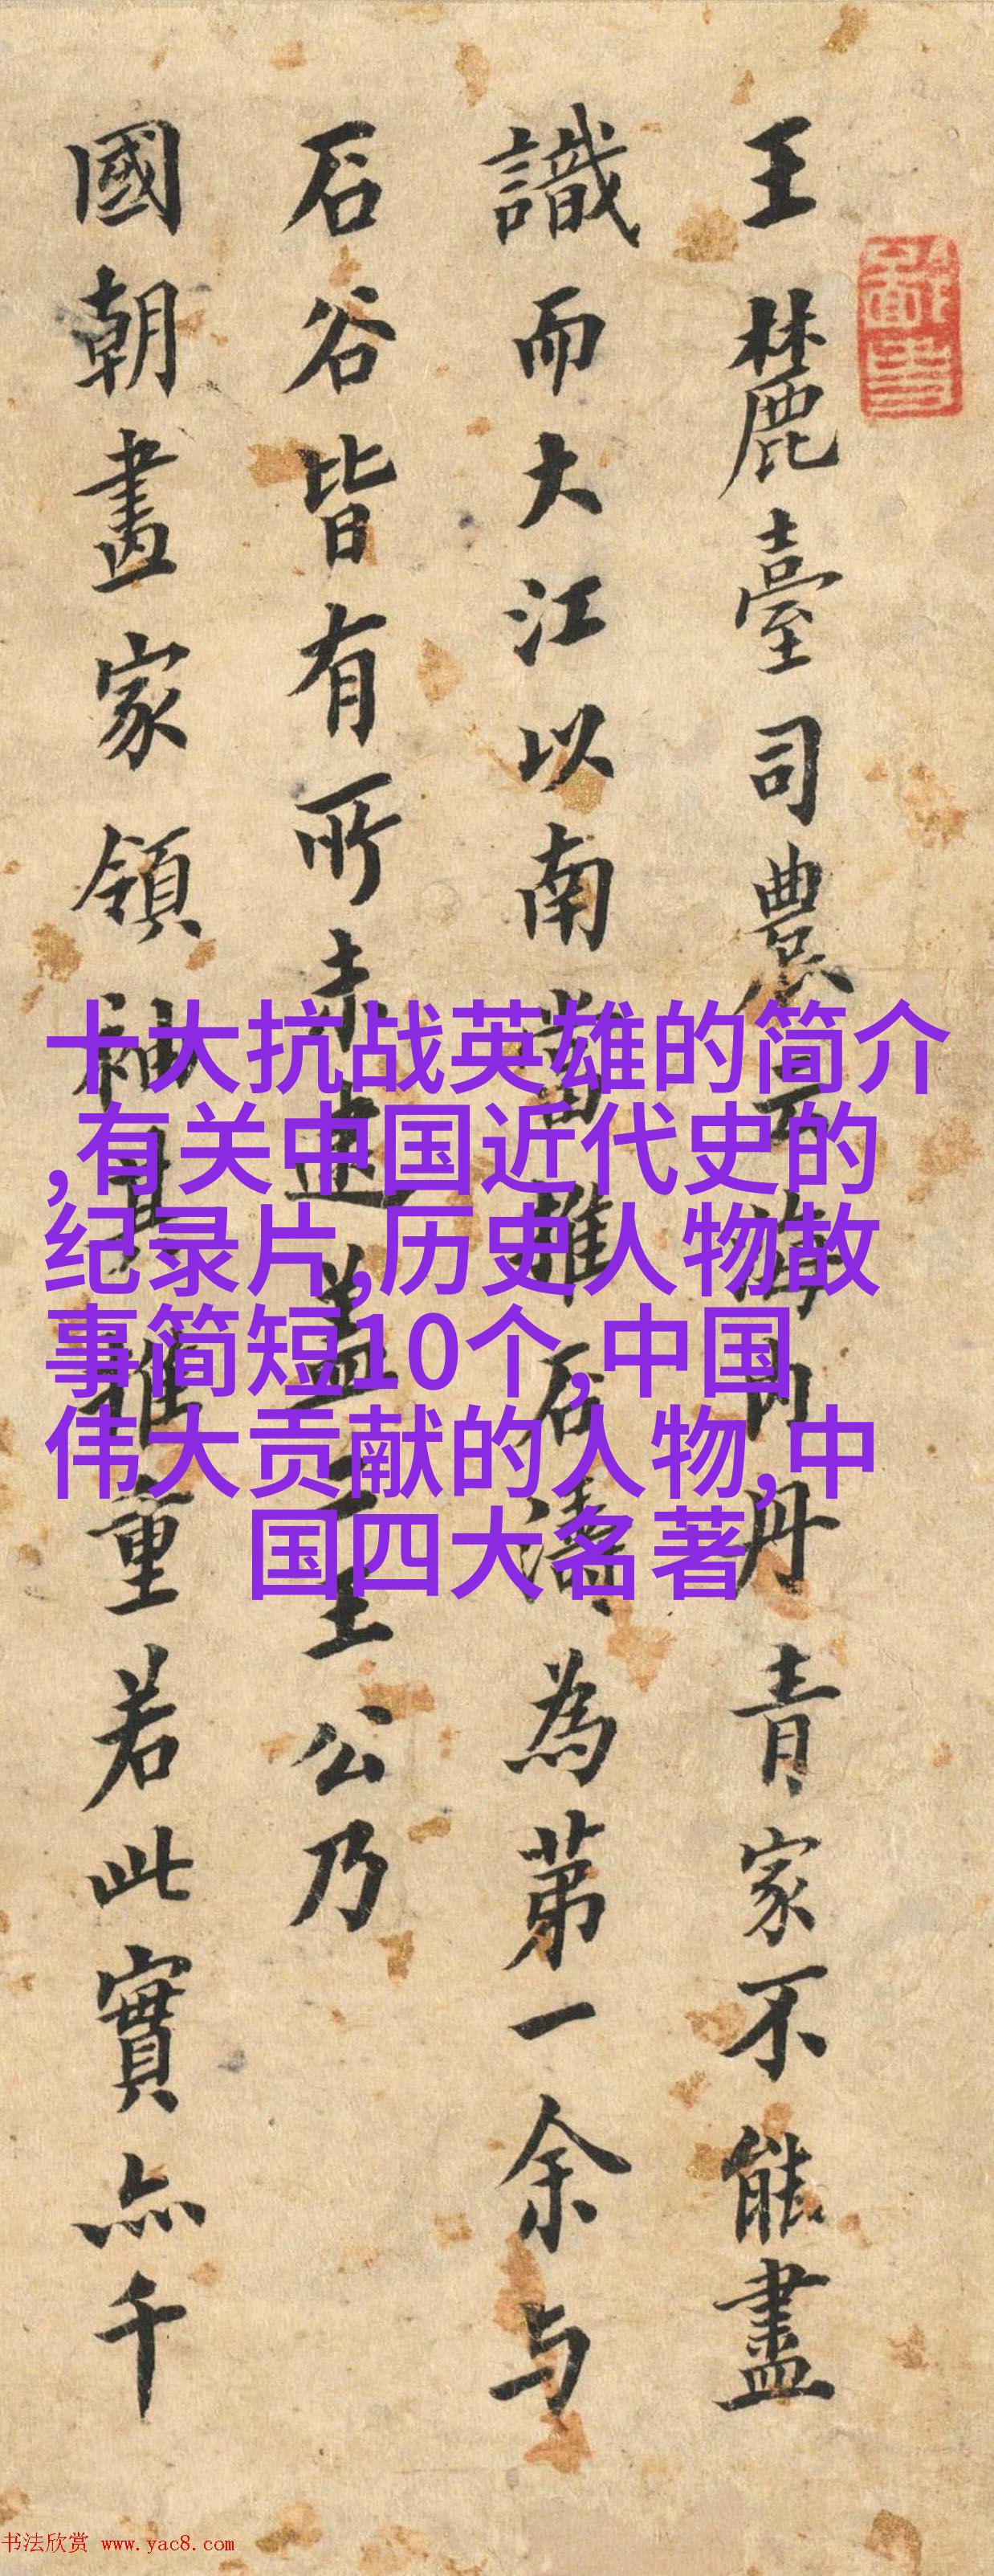 王麓臺司農云海內丹青家不能盡
識而大江以南當推石濤為第一余与
石谷皆有所未逮盖王公乃
國朝畫家領袖其推重若此實亦千
十大抗战英雄的简介
,有关中国近代史的
纪录片,历史人物故
事简短10个,中国
伟大贡献的人物,中
国四大名著
书法欣赏 www.yac8.com